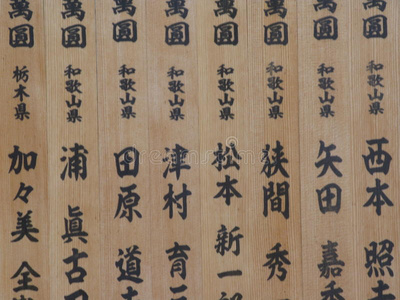 萬圓 和歌山県 西本 照
萬圓 和歌山県 矢田 嘉
萬圓 和歌山県 狭間 秀
萬圓 和歌山県 松本 新一郎
萬圓 和歌山県 津村 育
萬圓 和歌山県 田原 道
萬圓 和歌山県 浦 眞古
萬圓 栃木県 加々美 全